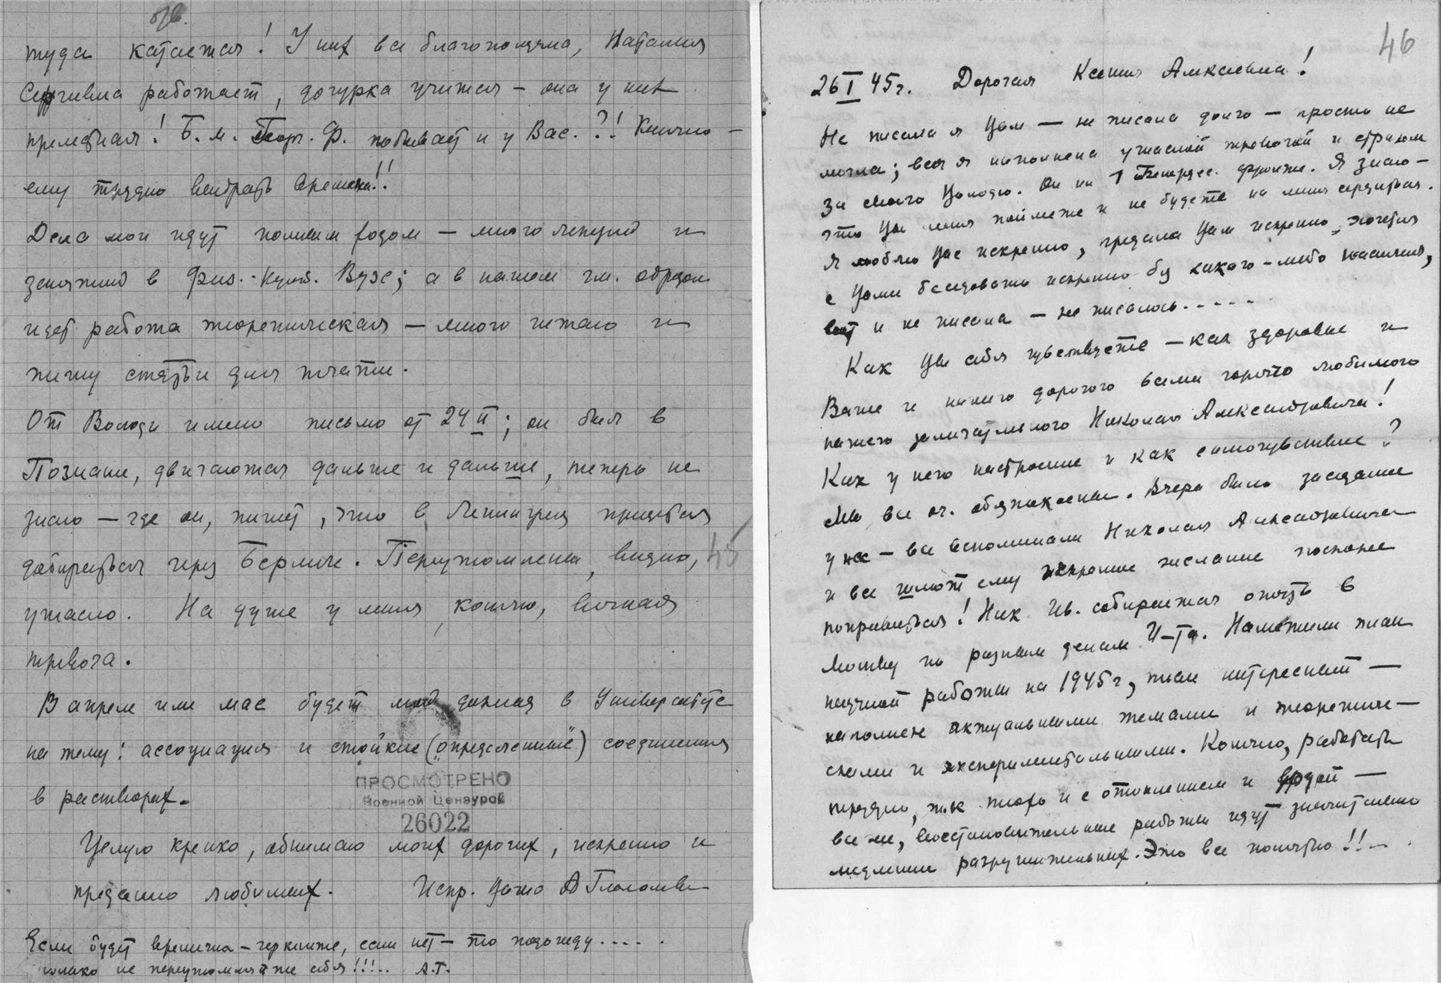 туда катаетая! У них все благополучно, Наталия
Сергеевна работает, дочурка учится – она у них
прелестная! Б. м. Георг. Ф. побывает и у Вас. ?! Конечно –
ему трудно выбрать время!!
Дела мои идут полным ходом – много лекций и
занятий в Физ. - Вузе; а в нашем гл. образом
идет работа теоретическая – много читаю и
пишу статьи для печати.
От Володи имею письмо от 24 II; он был в
Познани, двигаются дальше и дальше, теперь не
знаю – где он, пишет, что в Ленинград придется
добираться через Берлин. Переутомлены, видно,
45
ужасно. На душе у меня, конечно, вечная
тревога.
В апреле или мае будет мой доклад в Университете
на тему: ассоциация и стойкие (определенные) соединения
в растворах.
ПРОСМОТРЕНО
Военной Цензурой
26022
Целую крепко, обнимаю моих дорогих, искренно и
преданно любимых. Искр. Ваша А
Если будет времячко – черкните, если нет – то подожду.....
только не переутомляйте себя!!!.. А.Т.
46
26 I 45 г. Дорогая Ксения Алексеевна!
Не писала я Вам – не писала долго – просто не
могла; вся я наполнена ужасной тревогой и страхом
за своего Володю. Он на 1 Белорус. фронте. Я знаю –
что Вы меня поймете и не будете на меня сердиться.
Я люблю Вас искренно, предана Вам искренно, хочется
с Вами беседовать искренно без какого-либо насилия,
вот и не писала – не писалось.....
Как Вы себя чувствуете – как здоровье и
Ваше и нашего дорогого всеми горячо любимого
нашего замечательного Николая Александровича!
Как у него настроение и как самочувствие?
Мы все оч. обеспокоены. Вчера было заседание
у нас – все вспоминали Николая Александровича
и все шлют ему искренние желание поскорее
поправиться! Ник. Ив. собирается опять в
Москву по разным делам И-та. Наметили план
научной работы на 1945 г, план интересный –
наполнен актуальными темами и теоретиче-
скими и экспериментальными. Конечно, работать
трудно, т.к. плохо и с отоплением и водой –
все же, восстановительные работы идут значительно
медленнее разрушительных. Это все понятно!!..